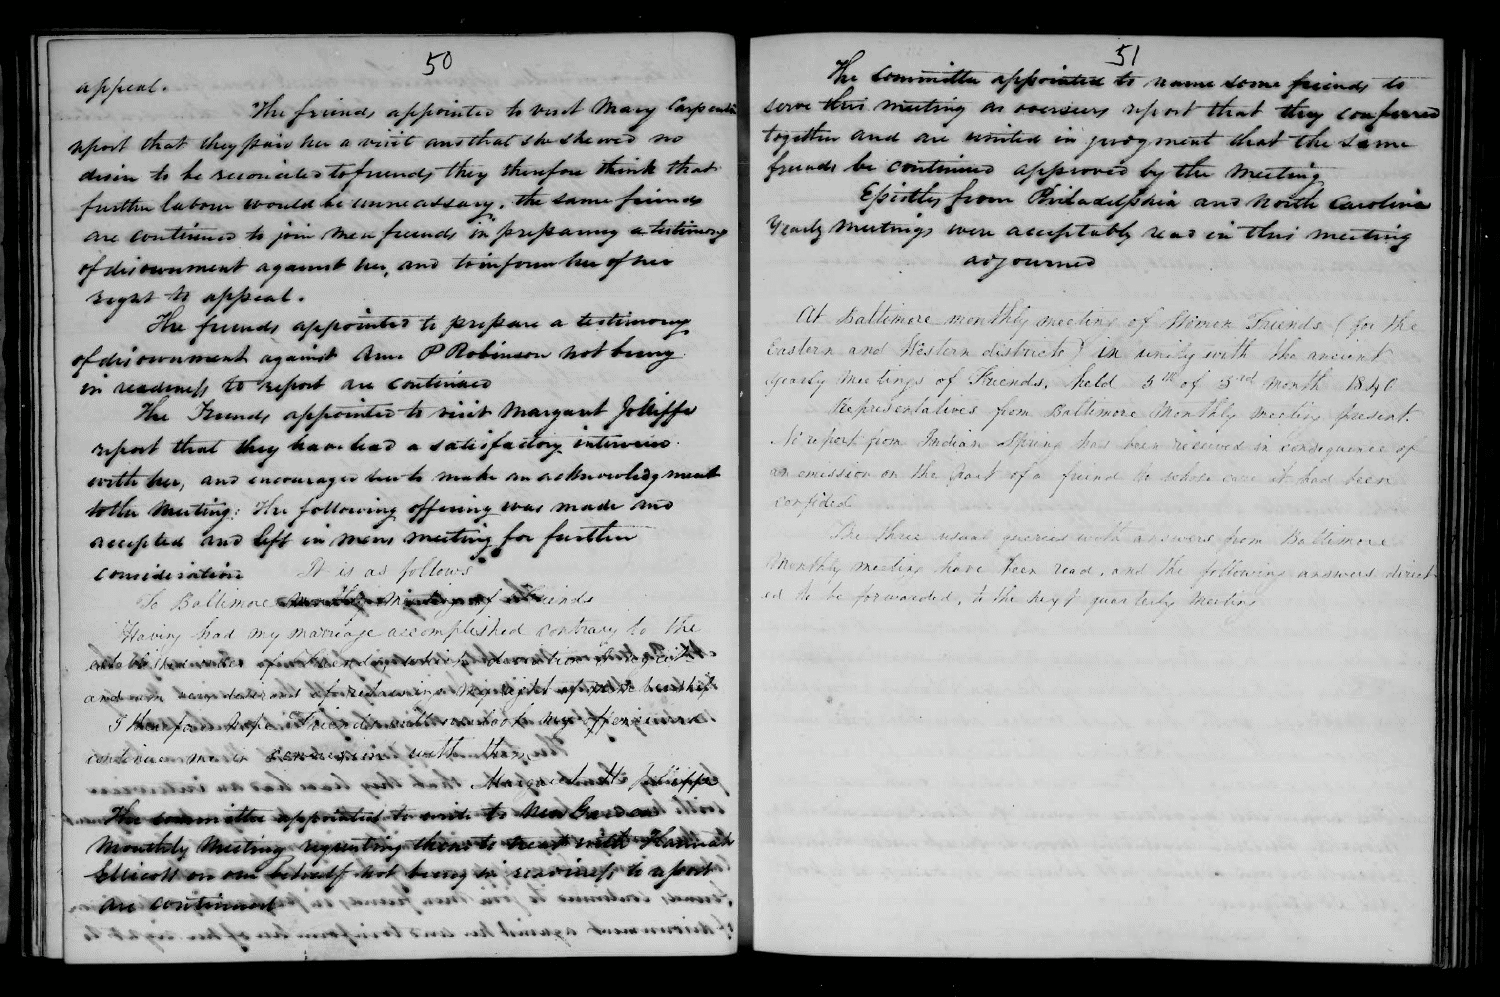 50
appeal.
The friends appointed to visit Mary Carpenter
report that they paid her a visit and that she shewed no
desire to be reconciled to friends, they therefore think that
further labour would be unnecessary. the same friends
are continued to join men friends in preparing a testimony
of disownment against her, and to inform her of her
right to appeal.
The friends appointed to prepare a testimony
of disownment against Ann P Robinson not being
in readiness to report are continued
The Friends appointed to visit Margaret Jolliffe
report that they have had a satisfactory interview
with her, and encouraged her to make an acknowledgment
to the meeting: The following offering was made and
accepted and left in mens meeting for further
consideration It is as follows
To Baltimore monthly meeting of Friends
Having had my marriage accomplished contrary to the
established order of Friends, which deviation I regret
and am very desirous of retaining my right of membership
I therefore hope Friends will overlook my offence and
continue me in connexion with them
Margaret H Jolliffe
The committee appointed to write to New Garden
Monthly Meeting requesting them to treat with Hannah
Ellicott on our behalf not being in readiness to report
are continued
51
The committee appointed to name some friends to
serve this meeting as overseers report that they conferred
together and are united in judgment that the same
friends be continued approved by the meeting
Epistles from Philadelphia and North Carolina
Yearly Meetings were acceptably read in this meeting
adjourned
At Baltimore monthly meeting of Women Friends (for the
Eastern and Western districts) in unity with the ancient
yearly meetings of Friends. held 5th of 3rd month 1840
Representatives from Baltimore Monthly meeting present.
No report from Indian Spring has been received in consequence of
an omission on the part of a friend to whose care it had been
confided
The three usual queries with answers from Baltimore
Monthly meeting have been read, and the following answers direct
ed to be forwarded, to the next quarterly meeting